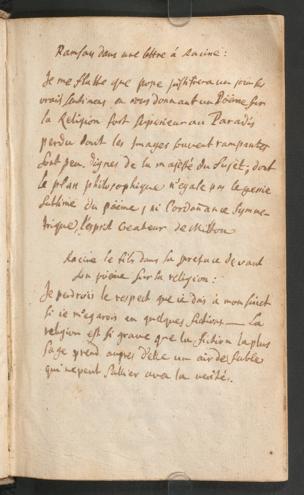 Ramsay dans une lettre à Racine:
Je me flatte que pope justifiera un jour ses
vrais sentimens en nous donnant un Poëme sur
la Religion fort superieur au Paradis
perdu dont les images souvent rampantes
sont peu dignes de la majesté du sujet; dont
le plan philosophique n'egale pas le genie
sublime du poëme, ni l'ordonnance symme-
trique, l'esprit createur de Milton
Racine le fils dans sa preface devant
son poëme sur la religion:
Je perdrois le respect que je dois à mon sujet
si je m'egarois en quelques fictions — La
religion est si grave que la fiction la plus
sage prend aupres d'elle un air de fable
qui ne peut s'allier avec la verité.